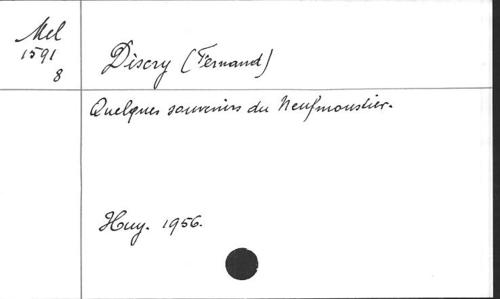 Mel
1591
8
Discry (Fernand)
Quelques souvenirs du Neufmoustier.
Huy. 1956.